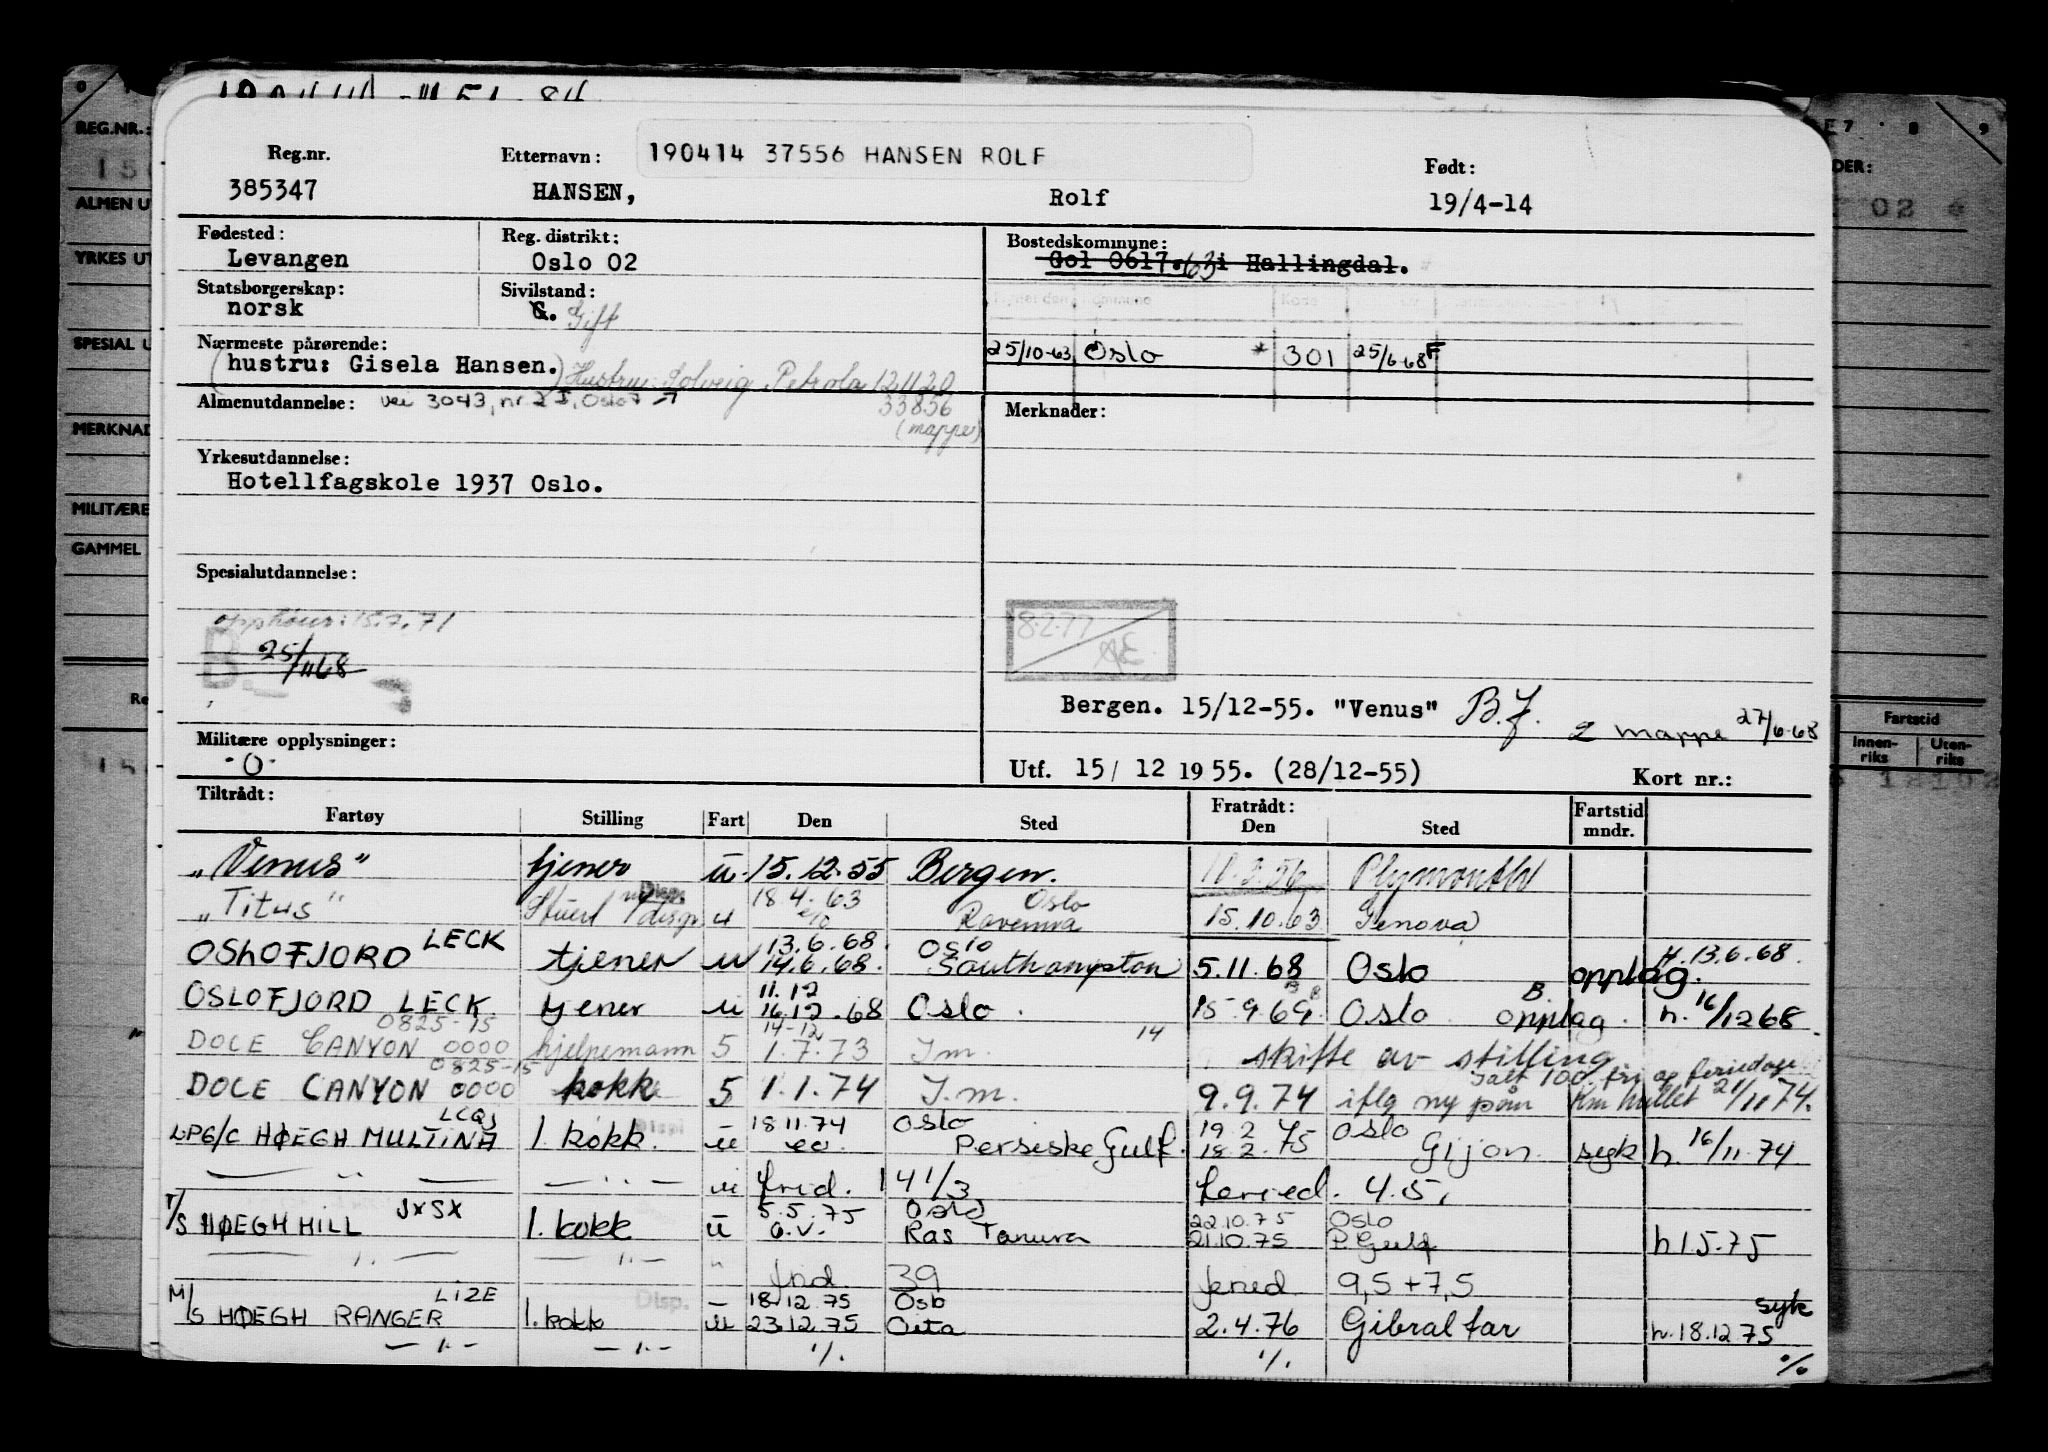 REG.NR.:
ALMEN U
YRKES UT
SPESIAL U
MERKNAD
MILITÆRE
GAMMEL
Reg.nr.
385347
Etternavn:
190414 37556 HANSEN ROLF
HANSEN,
Rolf
Født:
19/4-14
Fødested:
Levangen
Reg. distrikt:
Oslo 02
Bostedskommune:
Gol 0617. 63 i Hallingdal.
Statsborgerskap:
norsk
Sivilstand:
G. Gift
25/10-63 Oslo * 301 25/6-68 F
Nærmeste pårørende:
(hustru: Gisela Hansen.) Hustru: Solveig Petrola 121120
33856
(mappe)
Almenutdannelse: vei 3043, nr. 2 I, Oslo 7
Merknader:
Yrkesutdannelse:
Hotellfagskole 1937 Oslo.
Spesialutdannelse:
opphører: 15.7.71
B 25/11 68
8.2.77
AE
Bergen. 15/12-55. "Venus" B.J.
2 mappe 27/6-68
Militære opplysninger:
-0-
Utf. 15/ 12 1955. (28/12-55)
Kort nr.:
Fartstid
Innen-riks
Uten-riks
Tiltrådt:
Fartøy Stilling Fart Den Sted
Fratrådt:
Den Sted Fartstid mndr.
"Venus" tjener u. 15.12.55 Bergen. 11.3.56 Plymouth
"Titus" Stuert m/disp. u 18.4.63 Oslo
Ravenna 15.10.63 Genova
OSLOFJORD LECK tjener u 13.6.68. Oslo
14.6.68. Southampton 5.11.68 Oslo opplag. H. 13.6.68.
OSLOFJORD LECK tjener u 11.12
16.12.68 Oslo. 15-9.69 Oslo B. opplag. h. 16/12 68
0825-15 14-12 14
DOLE CANYON 0000 hjelpemann 5 1.7.73 I.m. skifte av stilling
0825-15 Ialt 100 fri og feriedage
DOLE CANYON 0000 kokk 5 1.1.74 I.m. 9.9.74 iflg ny påm Km hullet 21/11 74.
LPG/C HØEGH MULTINA LCQJ 1. kokk. Disp u 18.11.74 Oslo 19.2 75 Oslo
eo. Persiske Gulf. 18.2.75 Gijon. syk h. 16/11.74
— " — — " — u frid. 14 1/3 feried. 4.5,
T/S HØEGH HILL JXSX 1. kokk u 5.5.75 Oslo 22.10.75 Oslo
o.v. Ras Tanura 21.10.75 P. Gulf h 1.5.75
— " — — " — " frid 39 feried 9,5+7,5
M/S HØEGH RANGER LIZE 1. kokk Disp. — 18.12.75 Oslo syk
u 23.12.75 Oita 2.4.76 Gibraltar h.18.12.75
— " — — " — ./. ./. %